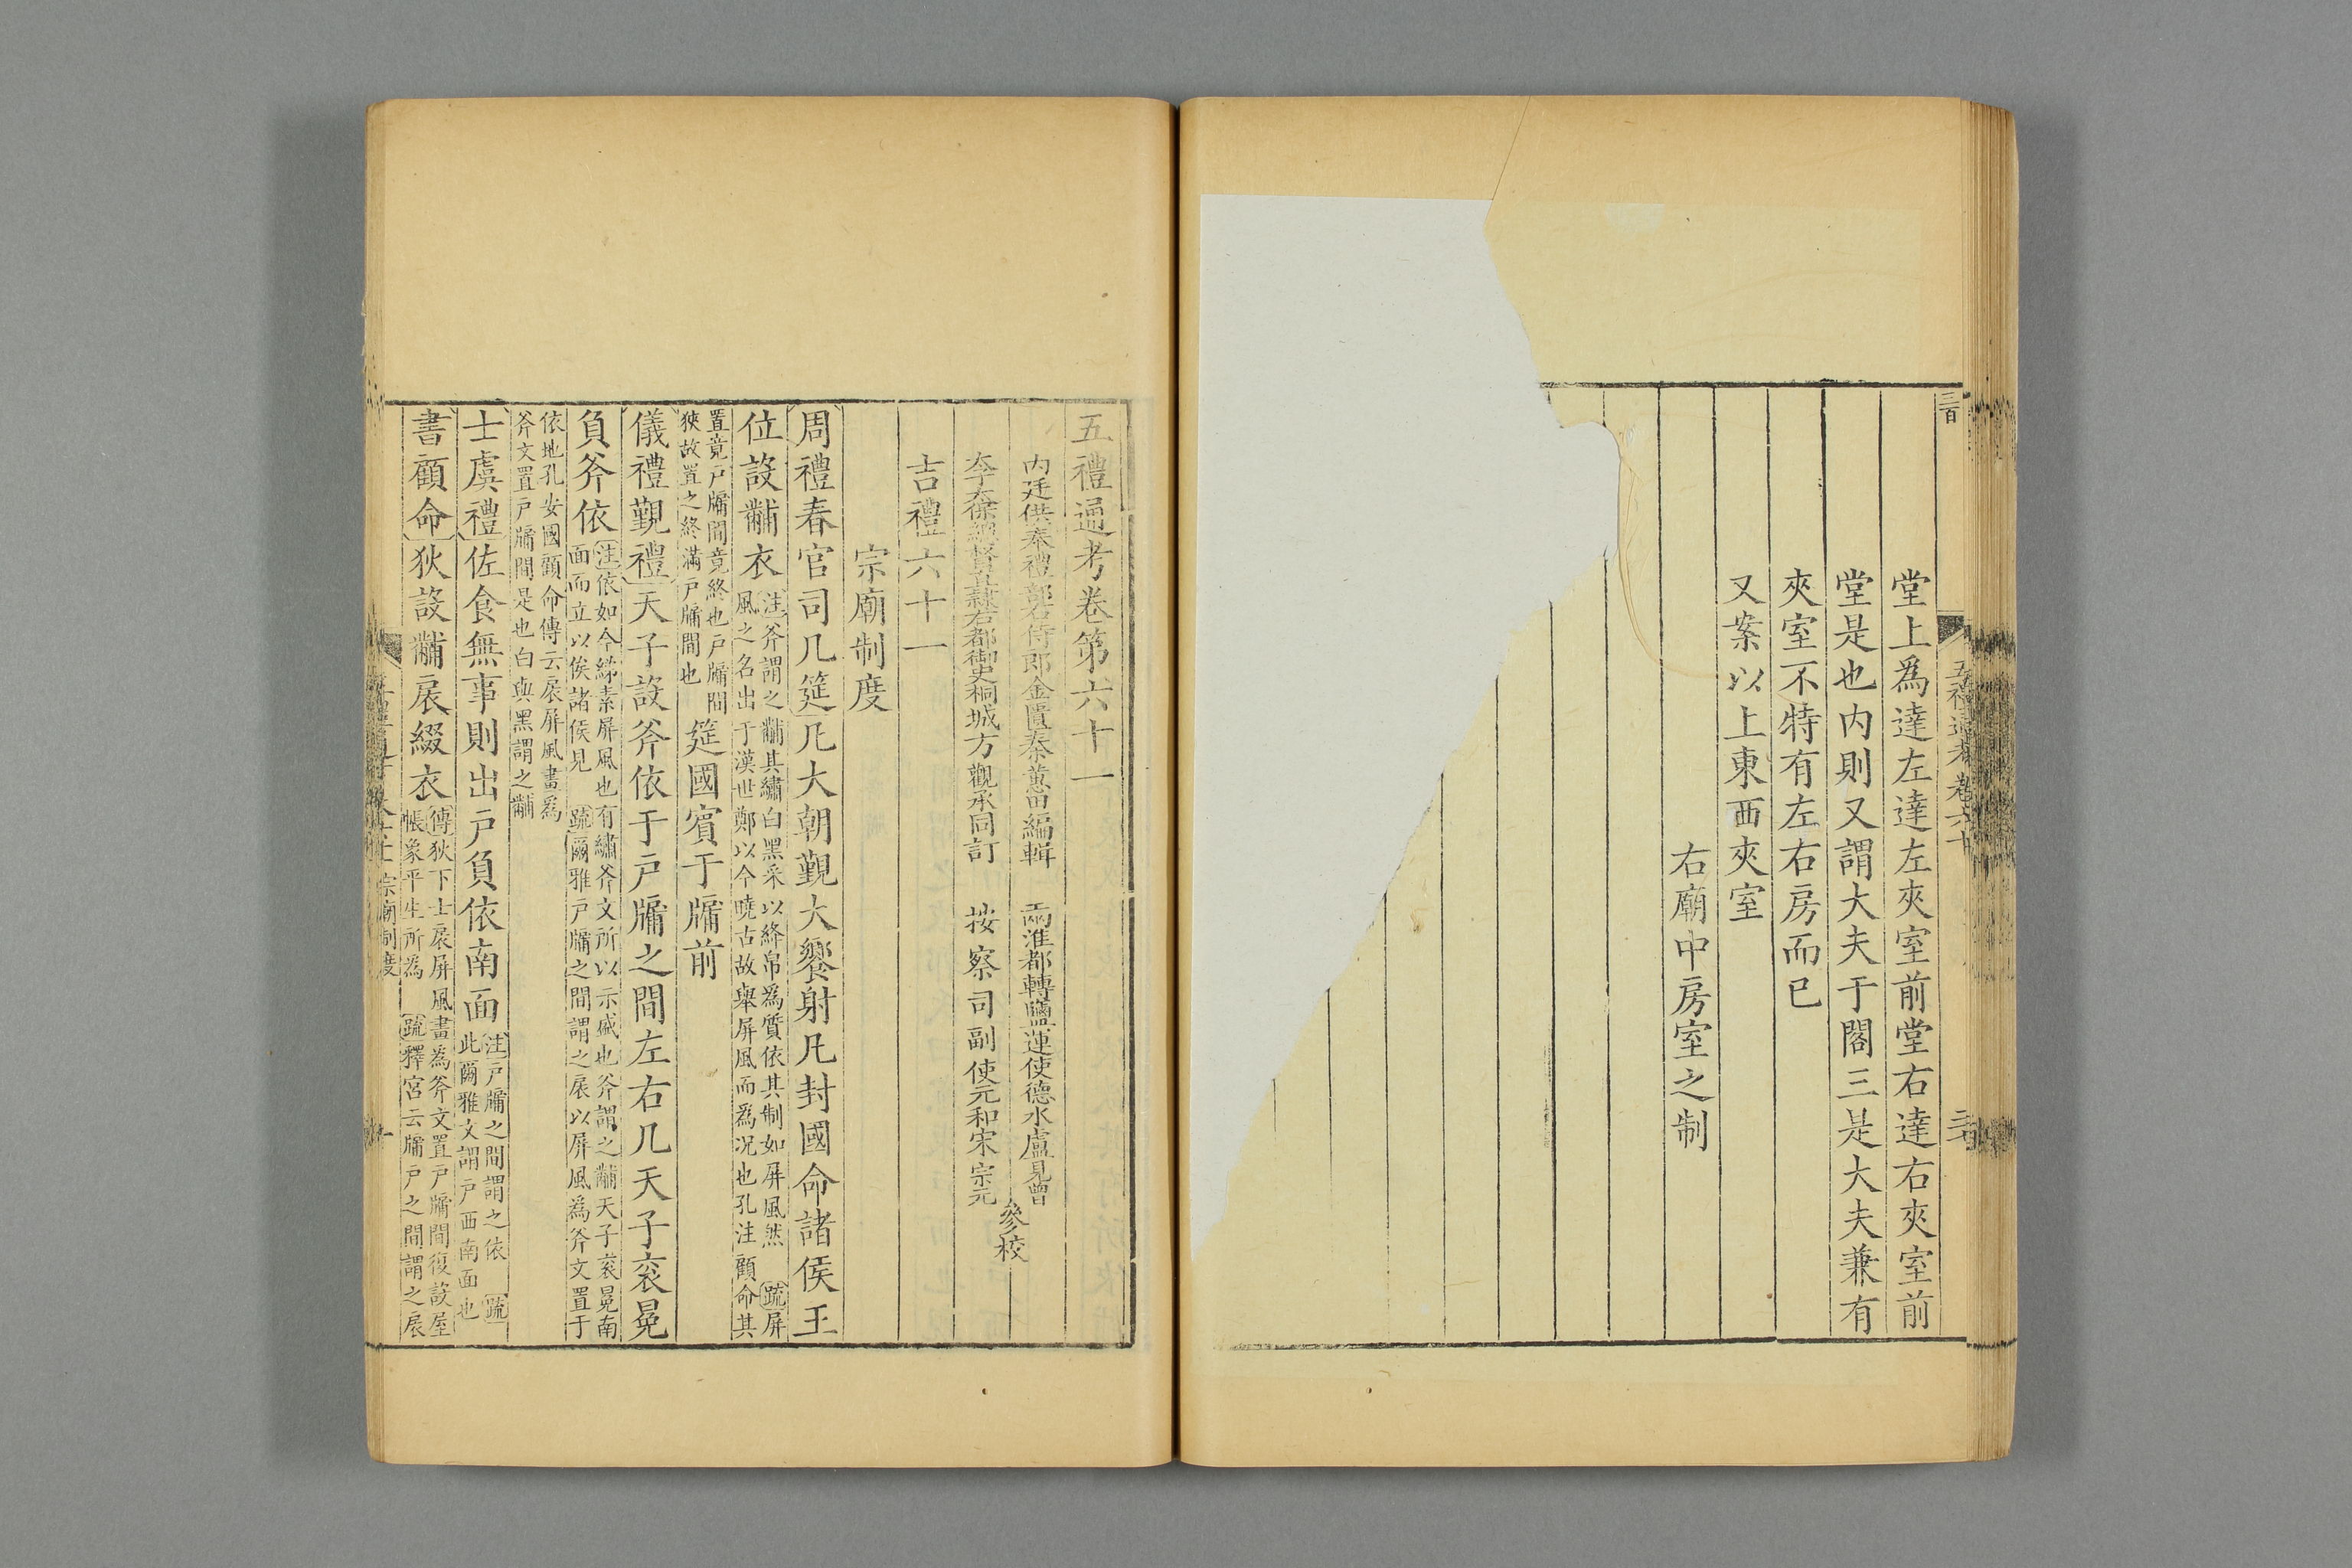 三百
五禮通考卷六十
堂上爲達左達左夾室前堂右達右夾室前
堂是也内則又謂大夫于閣三是大夫兼有
夾室不特有左右房而已
又案以上東西夾室
右廟中房室之制
五禮通考卷第六十一
内廷供奉禮部右侍郎金匱秦蕙田編輯 兩淮都轉鹽運使德水盧見曾
太子太保總督直隸右都御史桐城方觀承同訂 按察司副使元和宋宗元
參校
吉禮六十一
宗廟制度
周禮春官司几筵凡大朝覲大饗射凡封國命諸侯王
位設黼衣注斧謂之黼其繡白黑采以絳帛為質依其制如屏風然 疏屏
風之名出于漢世鄭以今曉古故舉屏風而爲況也孔注顧命其
置竟戶牖間竟終也戶牖間
狹故置之終滿戶牖間也
筵國賓于牖前
儀禮覲禮天子設斧依于戶牖之間左右几天子衮冕
負斧依注依如今綈素屏風也有繡斧文所以示威也斧謂之黼天子衮冕南
面而立以俟諸侯見 疏爾雅戶牖之間謂之扆以屏風為斧文置于
依地孔安國顧命傳云扆屏風畫爲
斧文置戶牖間是也白與黑謂之黼
士虞禮佐食無事則出戶負依南面注戶牖之間謂之依 疏
此爾雅文謂戶西南面也
書顧命狄設黼扆綴衣傳狄下士扆屏風畫為斧文置戶牖間復設幄
帳象平生所為 疏釋宮云牖戶之間謂之扆
宗廟制度